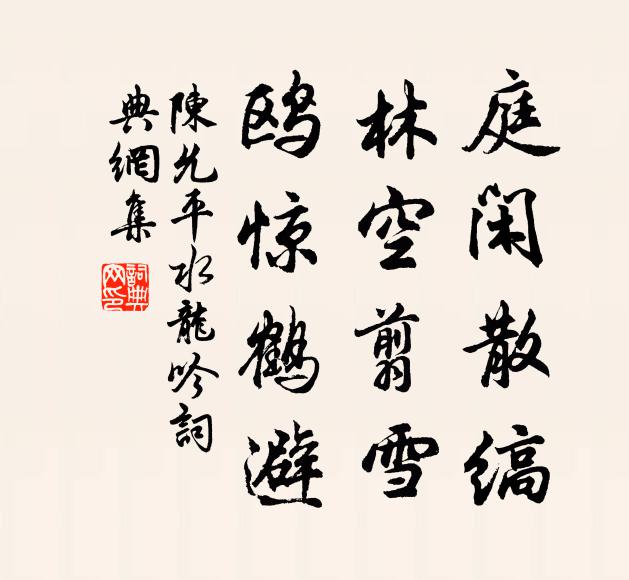 庭闲散缟
林空翦雪
鸥惊鹤避
陳允平水龍吟詞
典網集
詞典网印